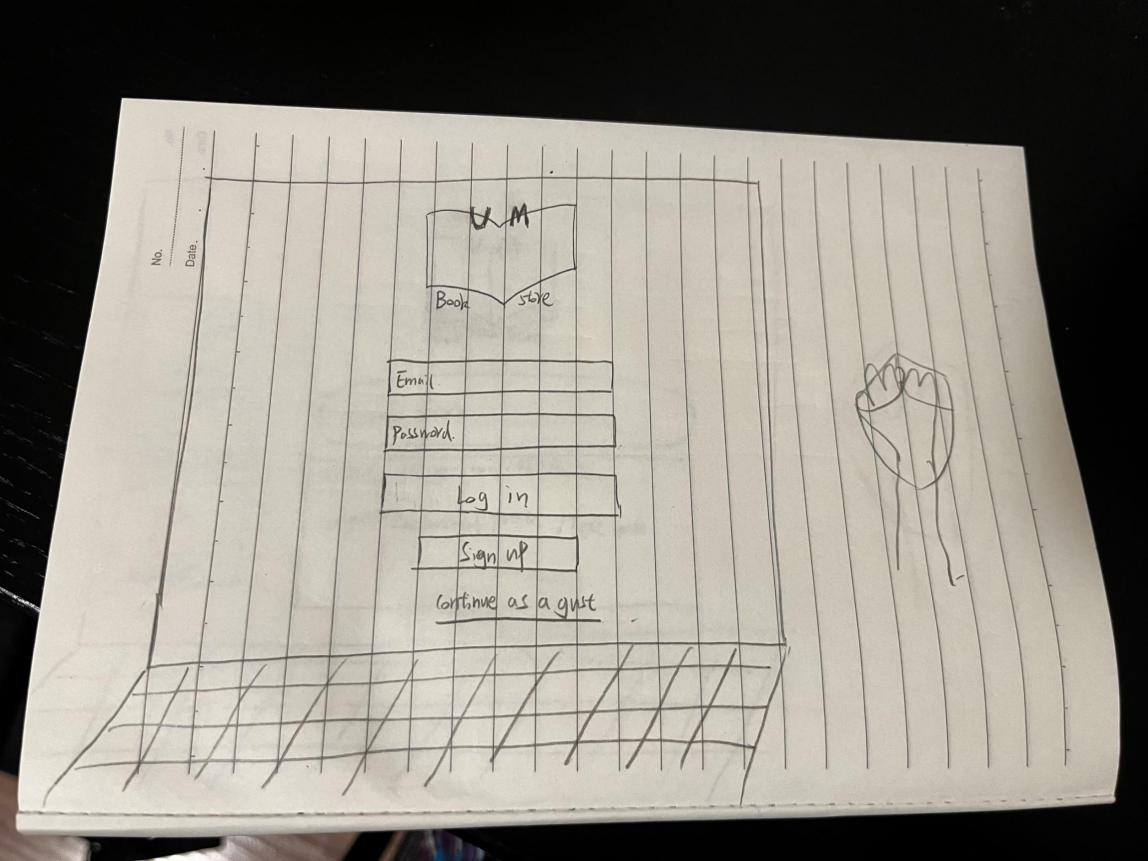 No.
Date.
U M
Book store
Email.
Password.
Log in
Sign up
Continue as a gust